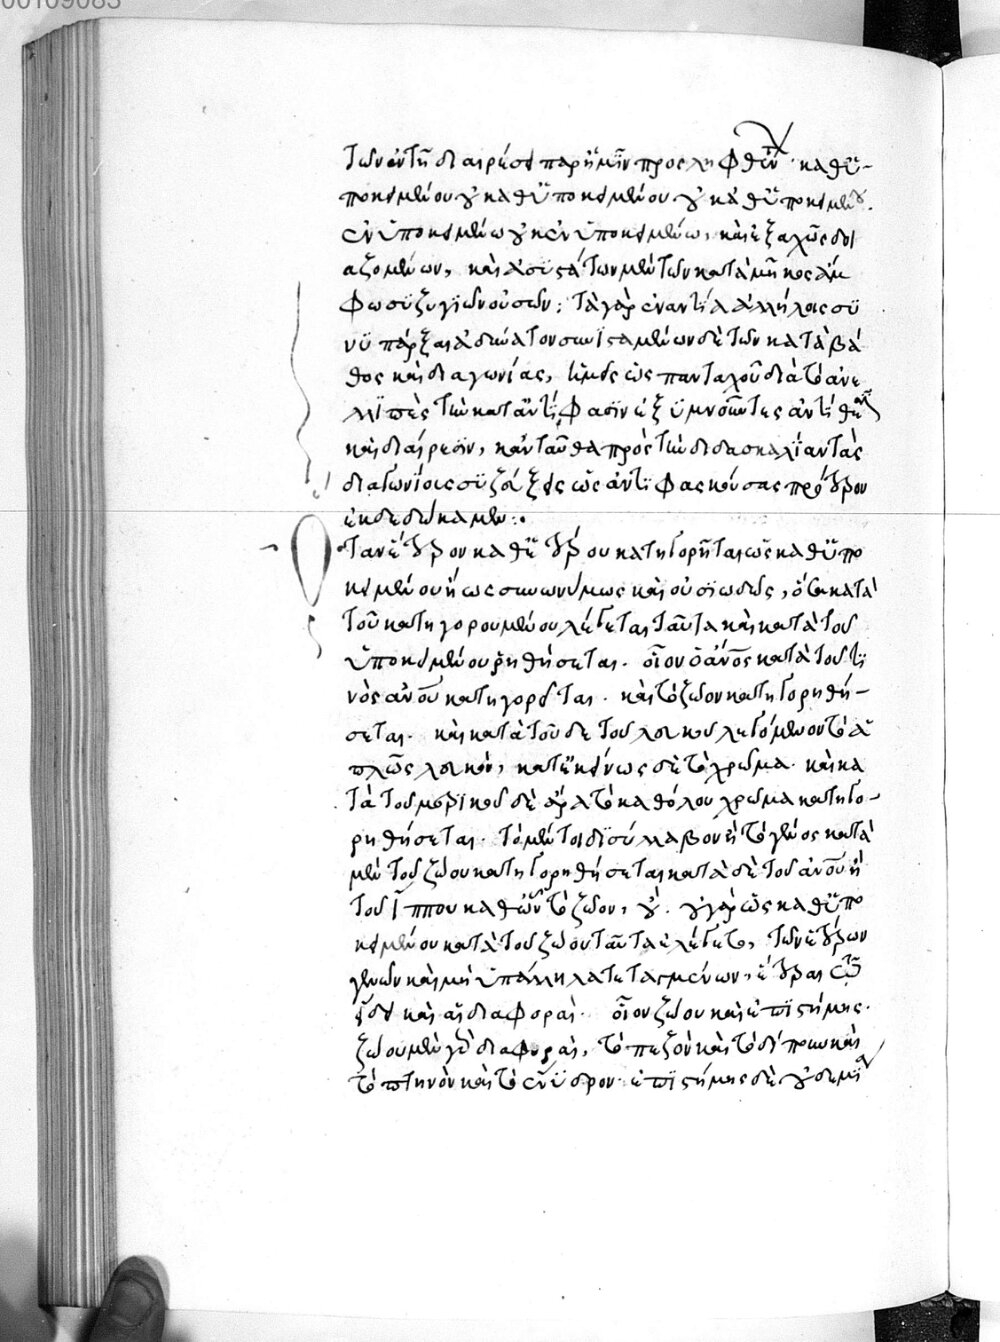 00109083
τῶν ἐν τῇ διαιρέσει παρ' ἡμῖν προσληφθέντων· καθ' ὑ-
ποκειμένου οὐ καθ' ὑποκειμένου· οὐ καθ' ὑποκειμένου.
ἐν ὑποκειμένω οὐκ ἐν ὑποκειμένω, καὶ ἑξαχῶς δοι
αζομένων, καὶ ἀσυστάτων μὲν τῶν κατὰ μῆκος ἄμ
φω συζυγιῶν οὐσῶν· τὰ γὰρ ἐναντία ἀλλήλοις συ
νυπάρξαι ἀδύνατον συνισταμένων δὲ τῶν κατὰ βά
θος καὶ διαγωνίας, ἡμεῖς ὡς πανταχοῦ διὰ τὸ ἀνε
λλιπὲς τὴν κατ' ἀντίφασιν ἐξυμνοῦντες ἀντίθεσιν
καὶ διαίρεσιν, κἀνταῦθα πρὸς τὴν διδασκαλίαν τὰς
διαγωνίοις συζεύξεις ὡς ἀντιφασκούσας πρότερον
ἐκδεδώκαμεν:·
Ὅταν ἕτερον καθ' ἑτέρου κατηγορῆται ὡς καθ' ὑπο
κειμένου ἤως συνωνύμως καὶ οὐσιωδῶς, ὅσα κατὰ
τοῦ κατηγορουμένου λέγεται ταῦτα καὶ κατὰ τοῦ
ὑποκειμένου ῥηθήσεται. οἷον ὁ ἄνος κατὰ τοῦ τι
νὸς ἀνοῦ κατηγορεῖται. καὶ τὸ ζῶον κατηγορηθή-
σεται. καὶ κατὰ τοῦδε τοῦ λευκοῦ λεγόμενον τὸ ἁ
πλῶς λευκὸν, κατ' ἐκείνως δὲ τὸ χρῶμα. καὶ κα
τὰ τοῦ μερικοῦ δὲ ἄρα τὸ καθόλου χρῶμα κατηγο-
ρηθήσεται. τὸ μέντοι δισύλλαβον ἢ τὸ γένος κατὰ
μὲν τοῦ ζώου κατηγορηθήσεται κατὰ δὲ τοῦ ἀνοῦ ἢ
τοῦ ἵππου καθ' ὧν τὸ ζῶον, οὔ. οὐ γὰρ ὡς καθ' ὑπο
κειμένου κατὰ τοῦ ζώου ταῦτα ἐλέγετο, τῶν ἑτέρων
γενῶν καὶ μὴ ὑπάλληλα τεταγμένων, ἕτεραι τῷ
εἴδει καὶ αἱ διαφοραί. οἷον ζώου καὶ ἐπιστήμης.
ζώου μὲν γὰρ διαφοραὶ, τὸ πεζὸν καὶ τὸ δίπουν καὶ
τὸ πτηνὸν καὶ τὸ ἔνυδρον· ἐπιστήμης δὲ οὐδεμία